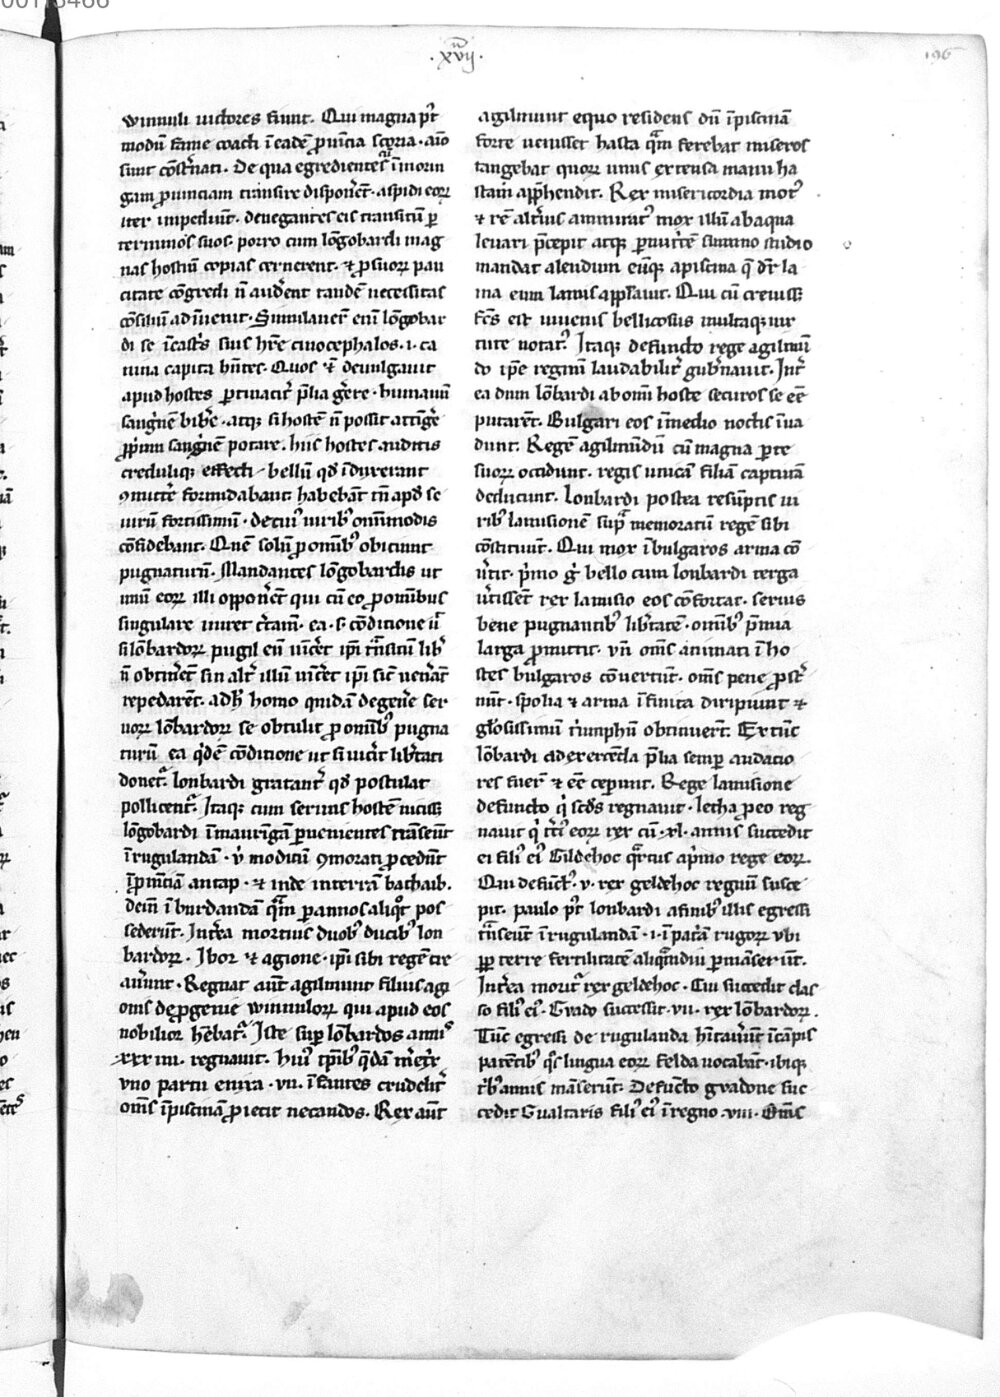 ·xvij·
196
winnuli uictores fiunt. Qui magna p̄t
modū fame coacti ī eadē ꝓuīcia scoria · aīo
sunt cōst̄nati. De qua egredientes ū ī morin
gam ꝓuinciam transire disponēt · aspidi eoꝝ
iter impediūt. denegantes eis transitū ꝑ
terminos suos. porro cum lōgobardi mag
nas hostiū copias cernerent. ⁊ ꝓ suoꝝ pau
citate cōgredi n̄ aud̄ent tandē necessitas
cōsiliū adīuenit. Simulauer̄ eni lōgobar
di se ī cast̄s suis hr̄e cinocephalos · i · ca
nina capita hn̄tes. Quos ⁊ deuulgauit
apud hostes ꝑtinacit̄ p̄lia ḡere · humanū
sangn̄e bib̄e · atqꝫ si hostē n̄ possit attīḡe
ꝓp̄um sangn̄e potare. hiis hostes auditis
creduliqꝫ effecti · bellū qd̄ īduxerant
ꝯmitt̄e formidabant. habebāt tn̄ apd̄ se
uirū fortissimū · de cuiꝰ uiribꝰ om̄imodis
cōfidebant. Quē solū ꝓ om̄ibꝰ obiciunt
pugnaturū. Mandantes lōgobardis ut
unū eoꝝ illi oppon̄ent qui cū eo ꝓ omnibus
singulare iniret c̄tam̄. ea · s · cōditione ū
si lōbardoꝝ pugil eū uīc̄et ip̄i t̄nsitū lib̄
n̄ obtin̄ent sin alt̄ illū uīc̄et ip̄i sic̄ uen̄ant
repedarēt. adh̄ homo quidā degen̄e ser
uoꝝ lōbardoꝝ se obtulit ꝓ om̄ibꝰ pugna
turū ea q̄de cōditione ut si uic̄it lib̄tati
donet̄. lonbardi gratant̄ qd̄ postulat
pollicent̄. Itaqꝫ cum seruus hostē uicissꝫ
lōgobardi ī maurīgā ꝑuenientes trāseūt
ī rugulandā · ū modicū ꝯmorati ꝓcedūt
ī ꝓuīciā antap · ⁊ inde interrā bathaib.
dein̄ ī burdandā q̄m ꝑ annos aliqͦt pos
sederūt. Int̄ea mortuis duobꝰ ducibꝰ lon
bardoꝝ. Ibor ⁊ agione · ip̄i sibi regē cre
auer̄t · Regnat aūt agilmunt filius agi
onis de ꝓgenie winnuloꝝ qui apud eos
nobilior hēbat̄. Iste suꝑ lōbardos annꝰ
xxxiiii. regnauit. Huiꝰ tp̄ibꝰ q̄dā m̄et̄x
vno partu enixa · vii · īfantes crudelit̄
om̄s ī piscinā ꝓiecit necandos. Rex aūt
agilmunt equo residens dū ī piscinā
forte uenisset hasta q̄m ferebat miseros
tangebat quoꝝ unus extensa manu ha
stam app̄hendit. Rex misericordia motꝰ
⁊ rē altiꝰ ammiratꝰ mox illū ab aqua
leuari p̄cepit atqꝫ ꝑnutt̄e summo studio
mandat alendum eūqꝫ a piscina q̄ dr̄ la
ma eum lamis appellauit. Qui cū creuissꝫ
fc̄s est iuuenis bellicosus multaqꝫ uir
tute notatꝰ. Itaqꝫ defuncto rege agilmū
do ip̄e regnū laudabilit̄ gub̄nauit. Int̄
ea dum lōbardi ab om̄i hoste securos se eē
putarēt. Bulgari eos ī medio noctis īua
dunt. Regē agilmūdū cū magna ꝑte
suoꝝ occidunt. regis unicā filiā captiuā
deducunt. lonbardi postea resūptis ui
ribꝰ lamisionē sup̄ memoratū regē sibi
cōstituūt. Qui mox ī bulgaros arma cō
ūtit. p̄mo ḡ bello cum lonbardi terga
ūtissent rex lamisio eos cōfortat. seruis
bene pugnantibꝰ lib̄tatē · om̄ibꝰ p̄mia
larga ꝓmittit. vn̄ om̄s animati ī ho
stes bulgaros cōuertūt. om̄s pene ꝓst̄
nūt. spolia ⁊ arma īfinita diripiunt ⁊
gl̄osissimū t̄umphū obtinuert. Ex tūc
lōbardi ad exercēda p̄lia semꝑ audacio
res fuer̄ ⁊ eē ceperunt. Rege lamisione
defuncto q̄ scd̄s regnauit. lecha ꝓ eo reg
nauit q̄ t̄ciꝰ eoꝝ rex cū · xl · annis succedit
ei filiꝰ eiꝰ Gildehoc q̄rtus a p̄mo rege eoꝝ.
Quo defuncto · v · rex geldehoc regnū susce
pit. paulo p̄t lonbardi a finibꝰ illis egressi
t̄nseūt ī rugulandā · i · ī patā rugoꝝ vbi
ꝓꝑ terre fertilitatē aliq̄mdiu ꝑmāserūt.
Int̄ea morit̄ rex geldehoc · Cui succedit clas
so filiꝰ eiꝰ. Grado successit · vii · rex lōbardoꝝ.
Tūc egressi de rugulanda hītauert īcāpis
patētibꝰ qͦs lingua eoꝝ felda uocabāt · ibiqꝫ
t̄bꝰ annis māserūt. Defuncto gradone suc
cedit Gualtaris filiꝰ eiꝰ ī regno · viii · Om̄s